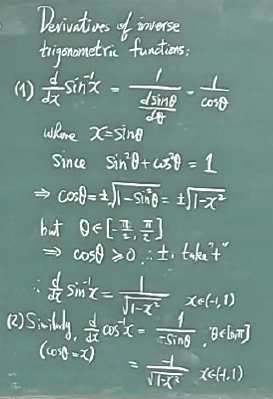 Derivatives of inverse
trigonometric functions:
(1) d/dx sin⁻¹x = 1/(d sinθ/dθ) = 1/cosθ
where x=sinθ
Since sin²θ+cos²θ = 1
⇒ cosθ=±√(1-sin²θ) = ±√(1-x²)
but θ∈[-π/2, π/2]
⇒ cosθ ≥ 0 ∴ ± take "+"
∴ d/dx sin⁻¹x = 1/√(1-x²) x∈(-1,1)
(2) Similarly, d/dx cos⁻¹x = 1/(-sinθ), θ∈[0,π]
(cosθ=x) = -1/√(1-x²) x∈(-1,1)